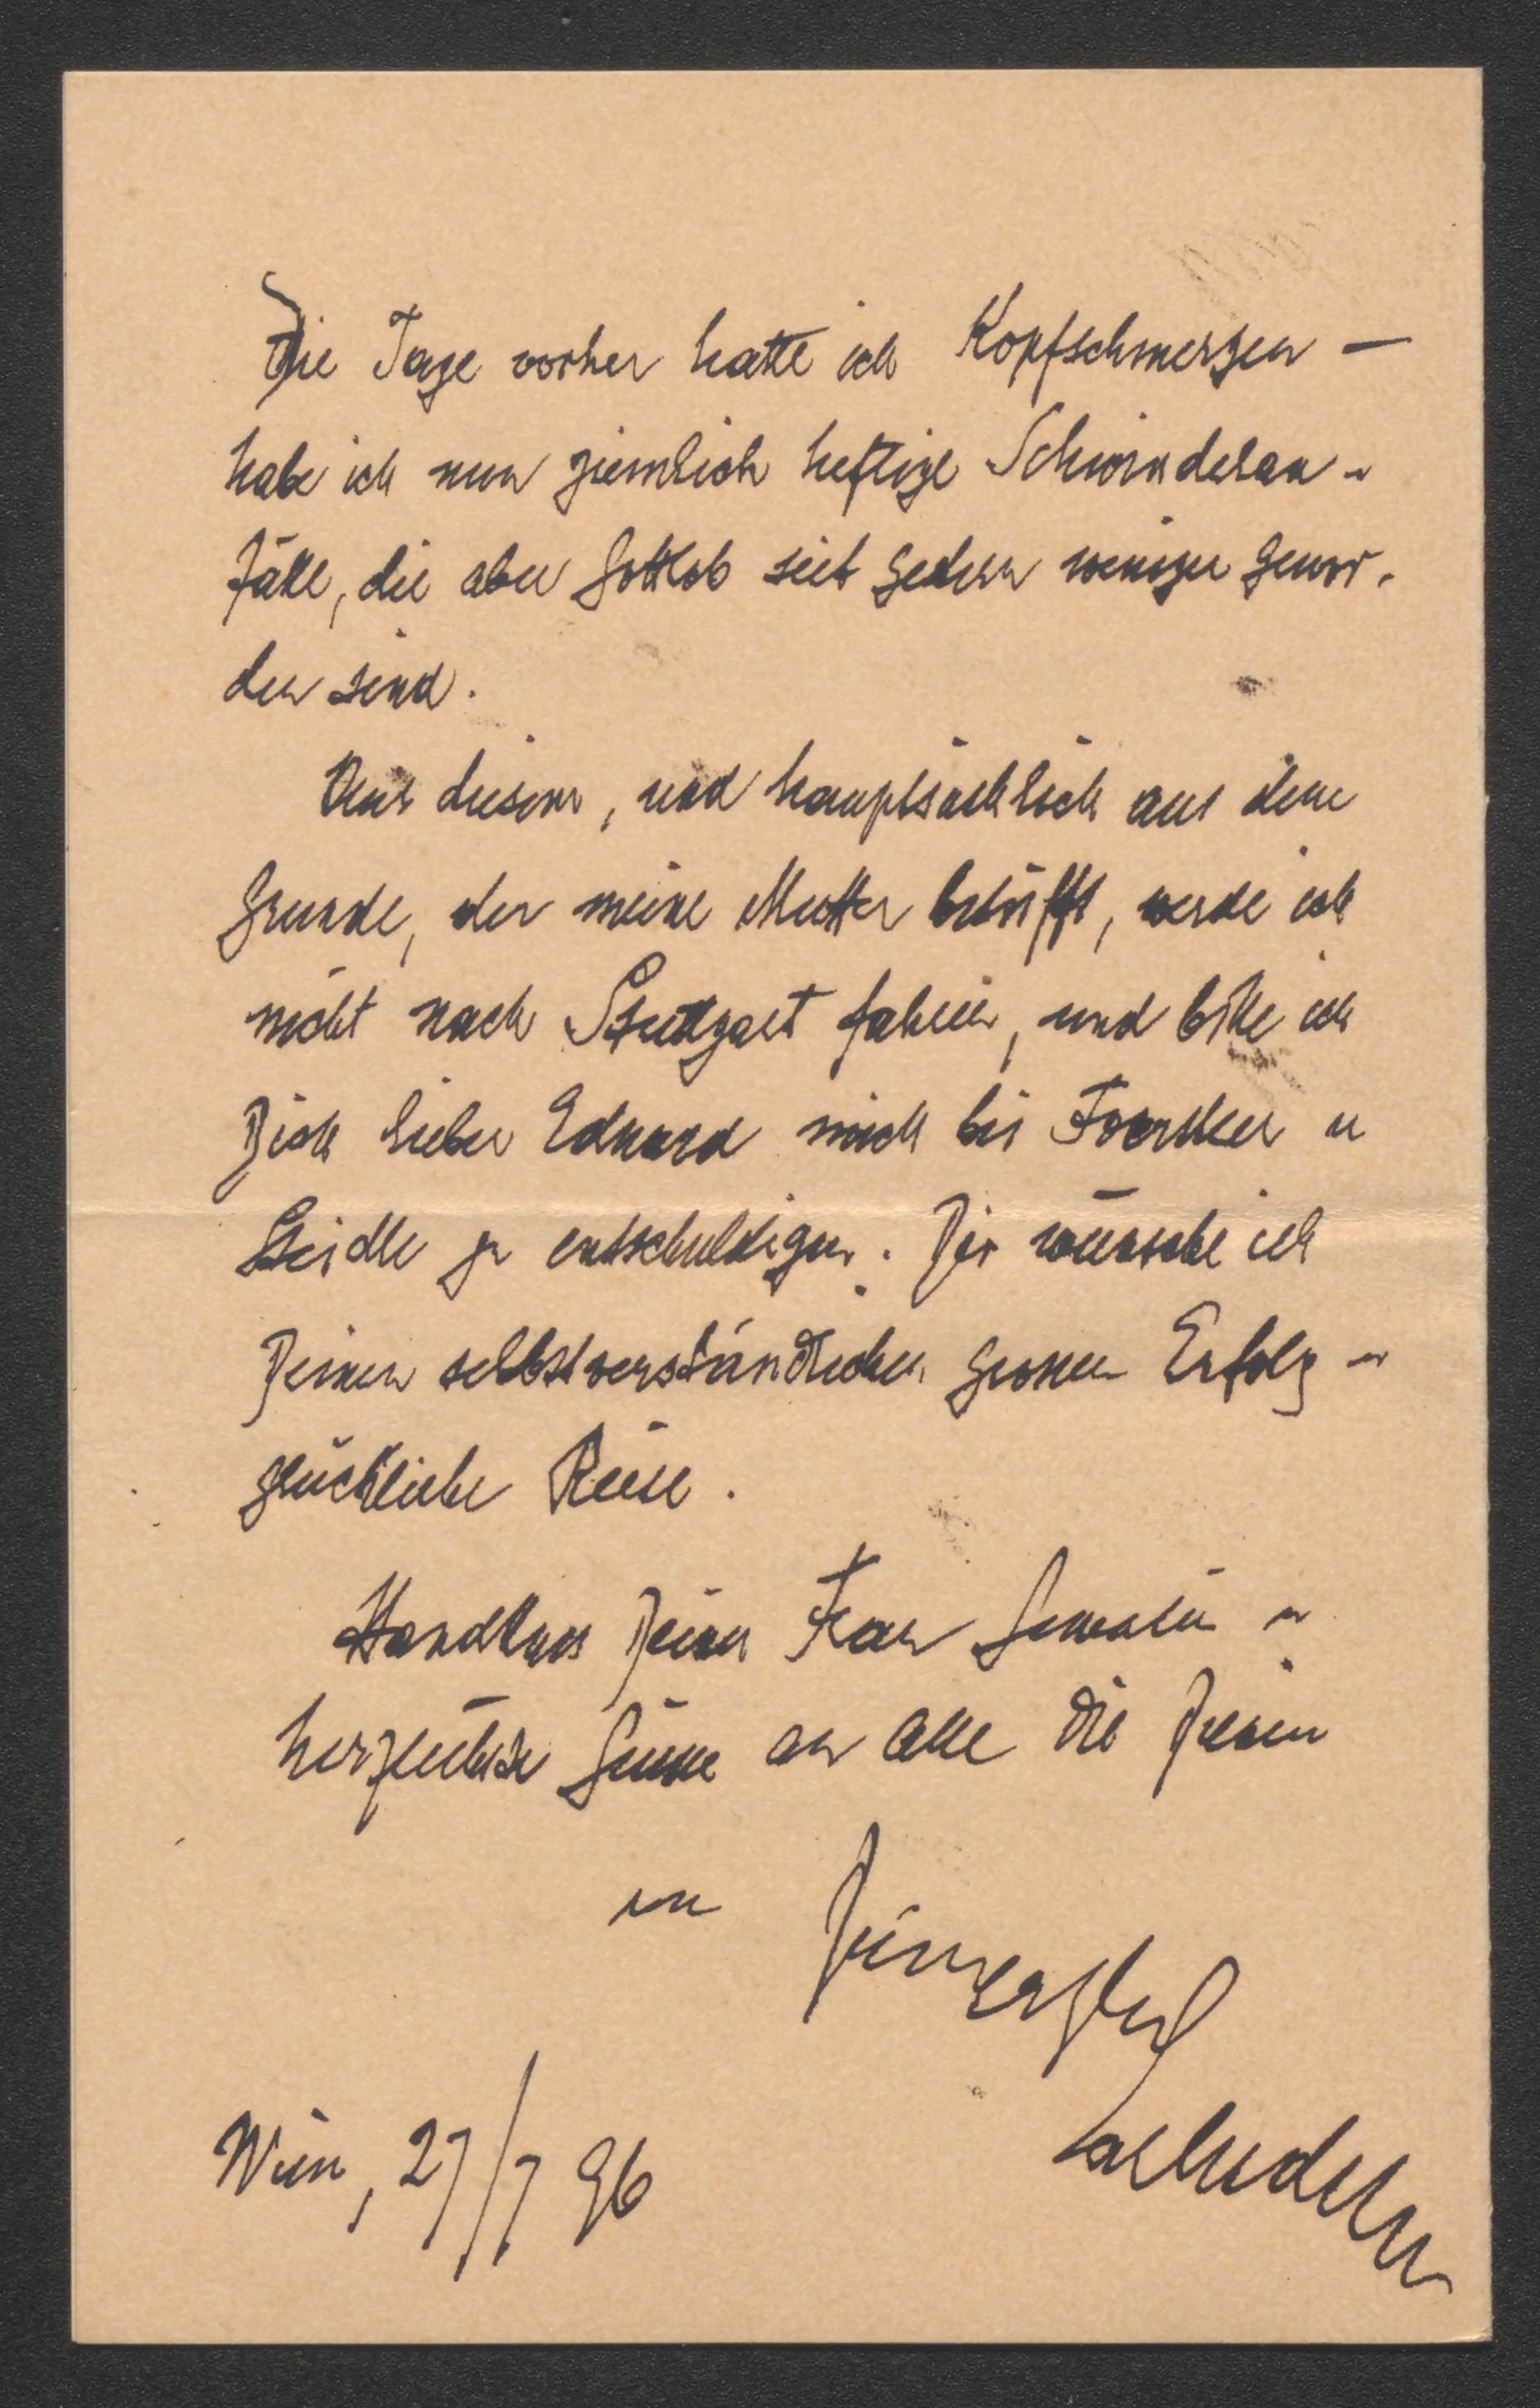 Die Tage vorher hatte ich Kopfschmerzen —
habe ich nun ziemlich heftige Schwindelan-
fälle, die aber Gottlob seit gestern weniger gewor-
den sind.
Aus diesem, und hauptsächlich aus dem
Grunde, der meine Mutter betrifft, werde ich
nicht nach Stuttgart fahren, und bitte ich
Dich lieber Eduard mich bei Foerster u
zu entschuldigen. Dir wünsche ich
Deinen selbstverständlichen grossen Erfolg u
glückliche Reise.
Handkuss Deiner Frau Gemalin u
herzlichste Grüsse an alle die Deinen
von
Wien, 27/7 96